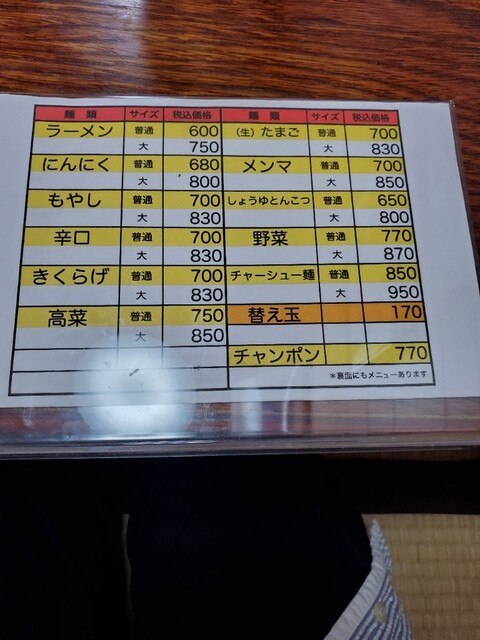 麺 類 サイズ 税込価格
ラーメン 普通 600
大 750
にんにく 普通 680
大 800
もやし 普通 700
大 830
辛口 普通 700
大 830
きくらげ 普通 700
大 830
高菜 普通 750
大 850
麺 類 サイズ 税込価格
(生) たまご 普通 700
大 830
メンマ 普通 700
大 850
しょうゆとんこつ 普通 650
大 800
野菜 普通 770
大 870
チャーシュー麺 普通 850
大 950
替え玉 170
チャンポン 770
*裏面にもメニューあります